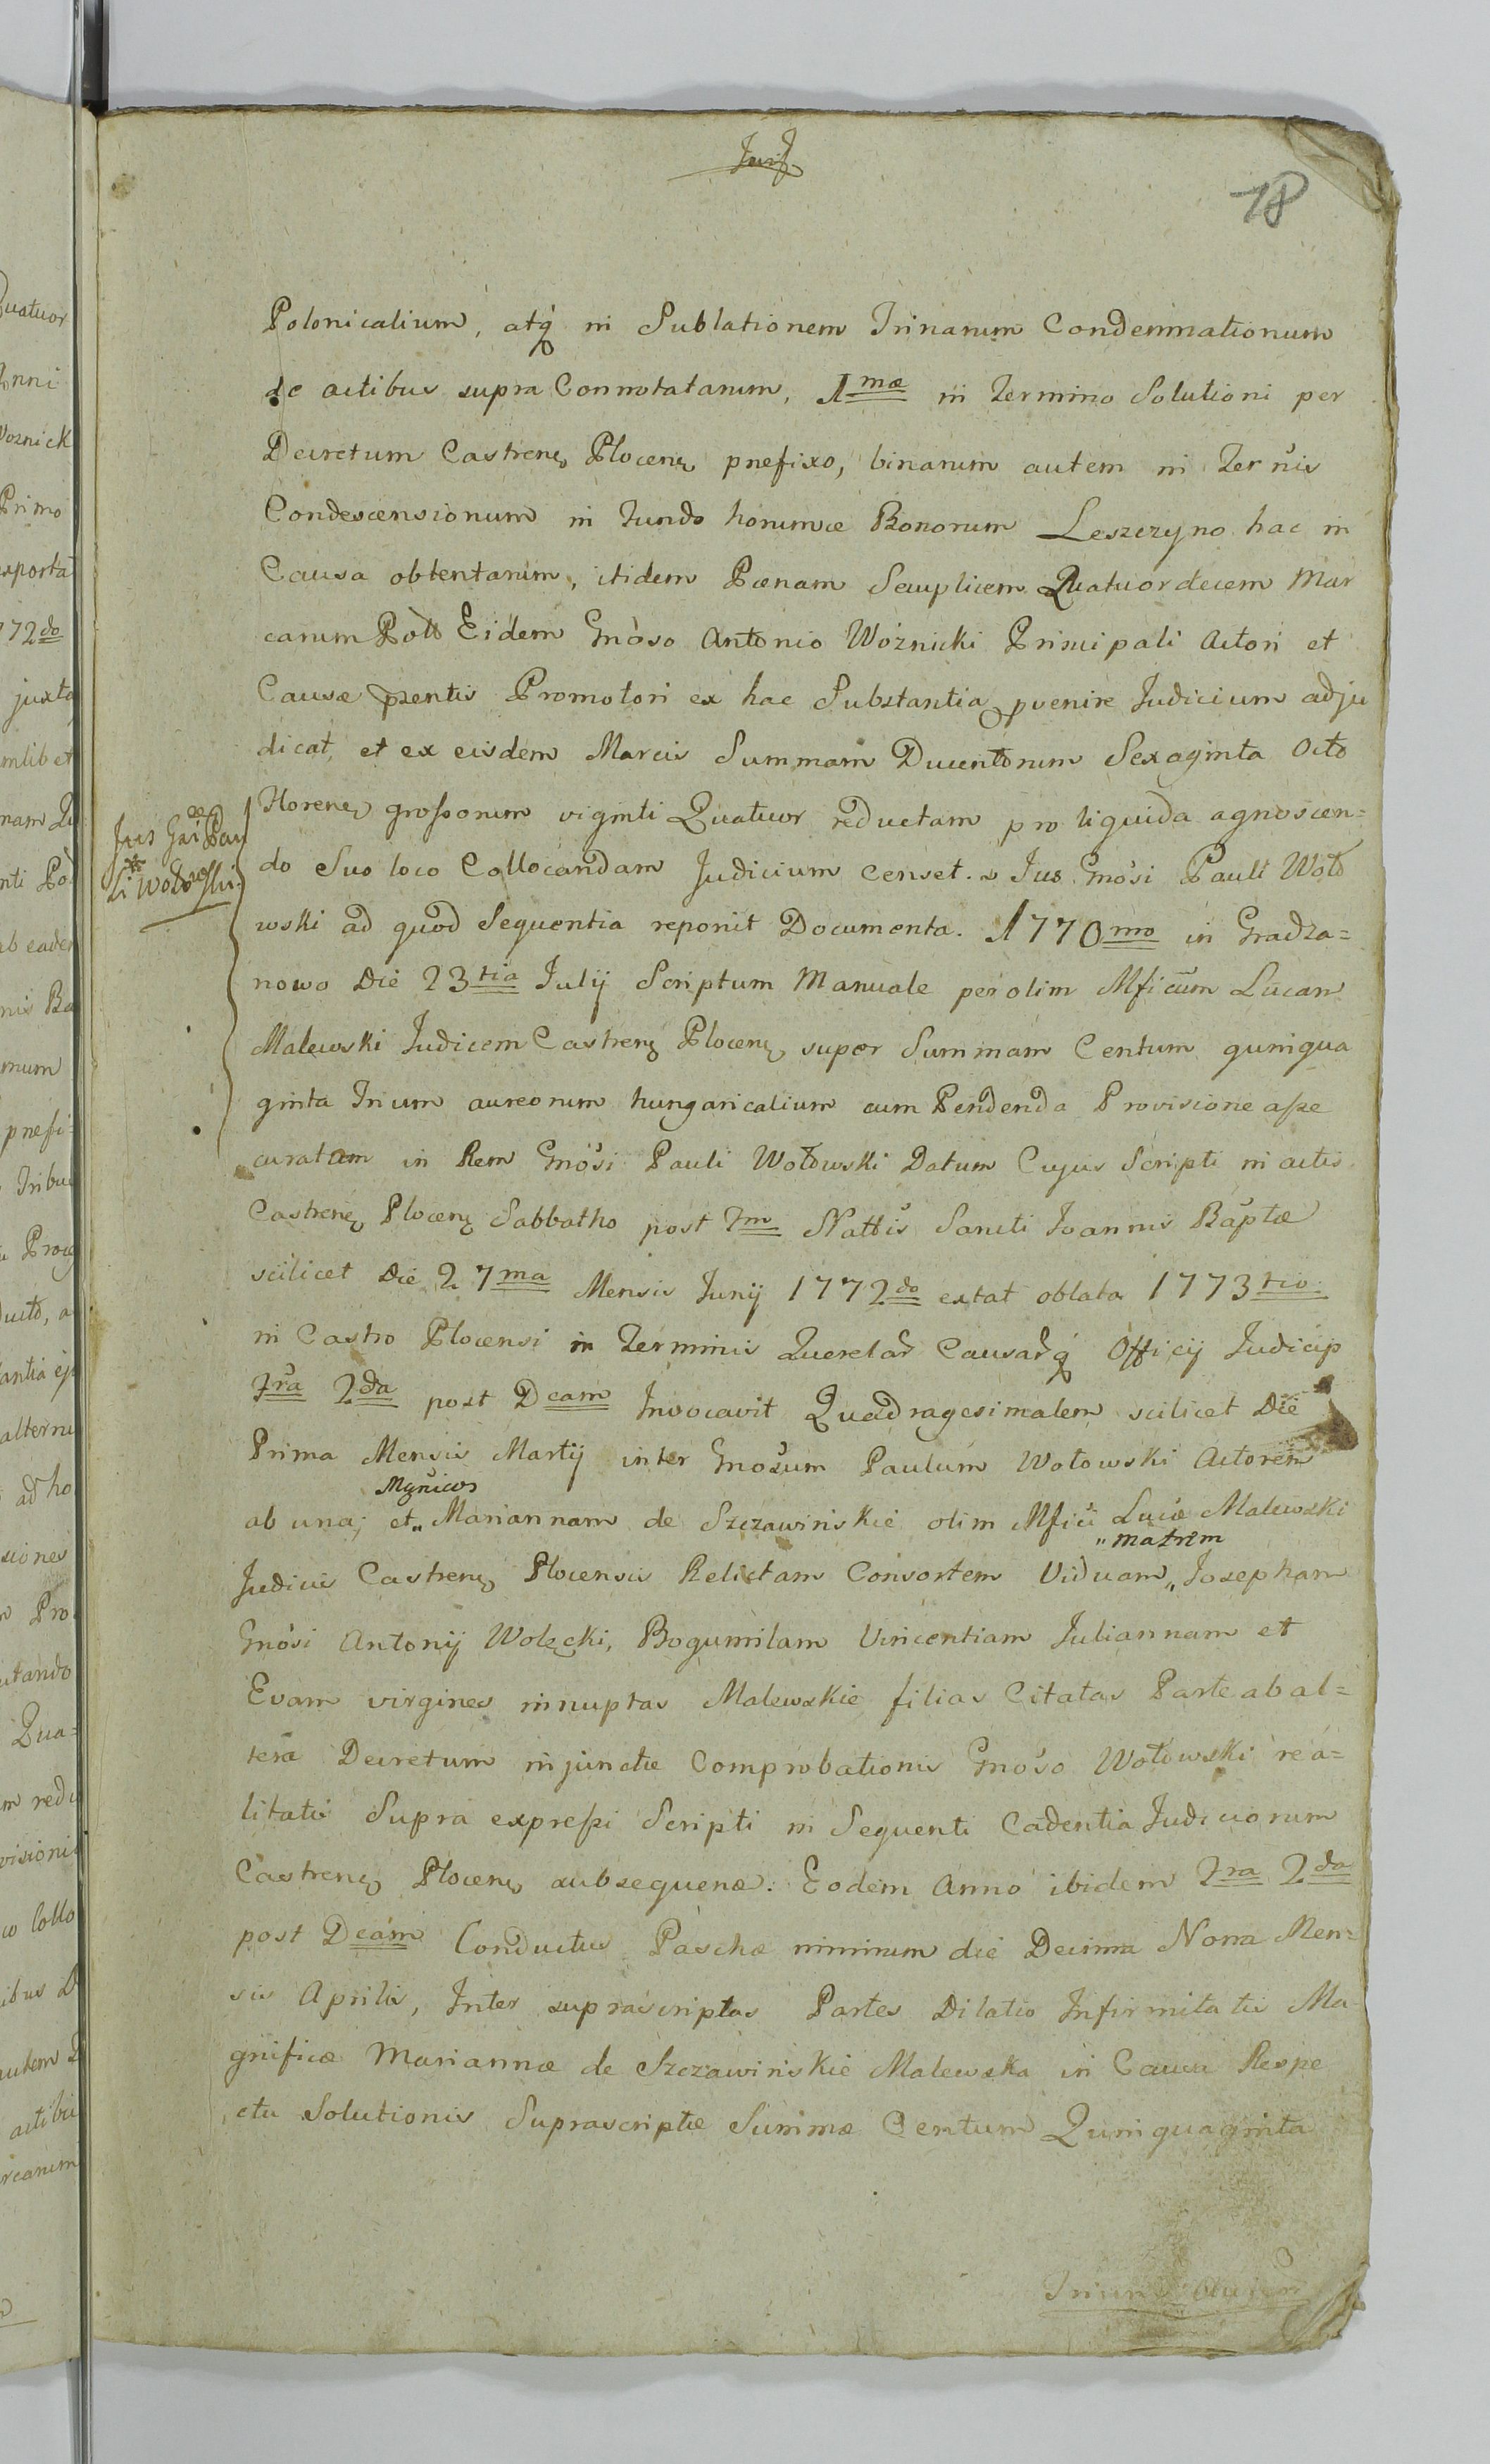 18
Polonicalium, atq́ in Sublationem Trinarum Condemnationum
de actibus supra Connotatarum, 1mæ in Termino Solutioni per
Decretum Castrens Plocens prefixo, binarum autem in Ternis
Condescensionum in fundo horumce Bonorum Leszczyno hac in
Causa obtentarum, itidem Pœnam Seuplicem Quatuordecem Mar
carum Poll Eidem Gnoso Antonio Wożnicki Principali Actori et
Causæ pzentis Promotori ex hac Substantia pvenire Judicium adju
dicat, et ex eisdem Marcis Summam Ducentorum Sexaginta Octo
Florens grossorum viginti Quatuor reductam pro liquida agnoscen=
do Suo loco Collocandam Judicium censet. Jus Gnosi Pauli Woło
Jus Gni Pau
li Wołowski
wski ad quod Sequentia reponit Documenta. 1770mo in Gradza=
nowo Die 23tia Julij Scriptum Manuale per olim Mficum Lucam
Malewski Judicem Castrens Plocens super Summam Centum quinqua
ginta Trium aureorum hungaricalium cum Pendenda Provisione asse
curatam in Rem Gnosi Pauli Wołowski Datum Cujus Scripti in actis
Castrens Plocens Sabbatho post Fm Nattis Sancti Joannis Baptæ
scilicet Die 27ma Mensis Junij 1772do extat oblata 1773tio
in Castro Plocensi in Terminis Querelar Causarq́ Officij Judicij
Fria 2da post Dcam Invocavit Quadragesimalem scilicet Die
Prima Mensis Martij inter Gnosum Paulum Wołowski Actorem
Mgnicos
ab una; et „ Mariannam de Szczawińskie olim Mfici Lucæ Malewski
„ matrem
Judicis Castrens Plocensis Relictam Consortem Viduam „ Josepham
Gnosi Antonij Wolęcki, Bogumilam Vincentiam Juliannam et
Evam virgines innuptas Malewskie filias Citatas Parte ab al=
tera Decretum injunctæ Comprobationis Gnoso Wołowski rea=
litatis Supra expressi Scripti in Sequenti Cadentia Judiciorum
Castrens Plocens subsequens. Eodem Anno ibidem Fria 2da
post Dcam Conductus Paschæ nimirum die Decima Nona Men=
sis Aprilis, Inter suprascriptas Partes Dilatio Infirmitatis Ma
gnificæ Mariannæ de Szczawińskie Malewska in Causa Respe
ctu Solutionis Suprascriptæ Summæ Centum Quinquaginta
Trium